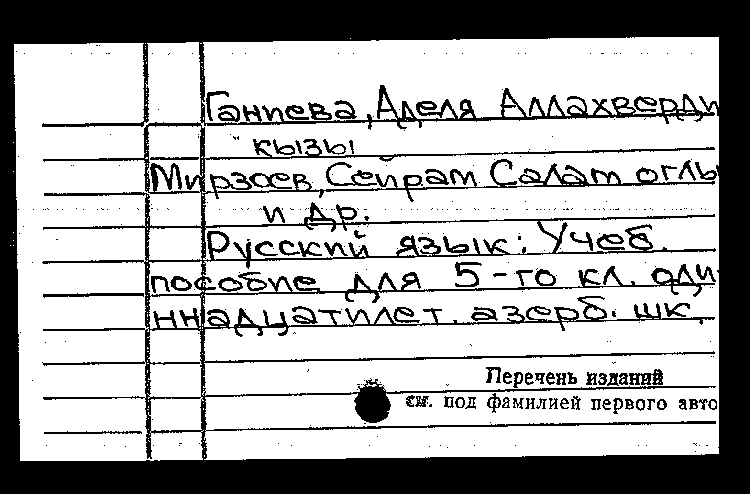 Ганиева, Аделя Аллахверди
кызы
Мирзоев, Сейрам Салат оглы
и др.
Русский язык: Учеб.
пособие для 5-го кл. оди-
ннадцатилет. азерб. шк.
Перечень изданий
см. под фамилией первого авто